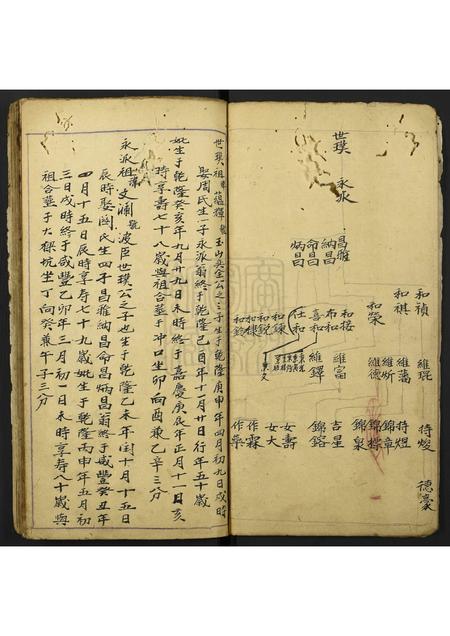 世璞
永派
昌雅
納昌
命昌
炳昌
和禎
和祺
和榮
和接
布和
喜和
仕和
和鍊
和銳
和樑
和鈴
維琨
維藩
維炘
維德
維富
維鐸
持煜
錦章
錦樑
錦泉
吉星
錦鎔
女壽
女大
作霖
作藥
德豪
世璞祖 蘊輝 號玉山奐全公之三子生于乾隆庚申年四月初九日戌時
娶周氏生一子永派翁終于乾隆乙酉年十一月廿日行年五十歲
妣生于乾隆癸亥年九月廿九日未時終于嘉慶庚辰年正月十一日亥
時享壽七十八歲與祖合葬于冲口坐卯向酉兼乙辛三分
永派祖 諱文瀾 號波臣世璞公之子也生于乾隆乙未年閏十月十五日
辰時娶闕氏生四子昌雅納昌命昌炳昌翁終于咸豐癸丑年
四月十五日辰時享壽七十九歲妣生于乾隆丙申年五月初
三日戌時終于咸豐乙卯年三月初一日未時享壽八十歲與
祖合葬于大樑坑坐丁向癸兼午子三分